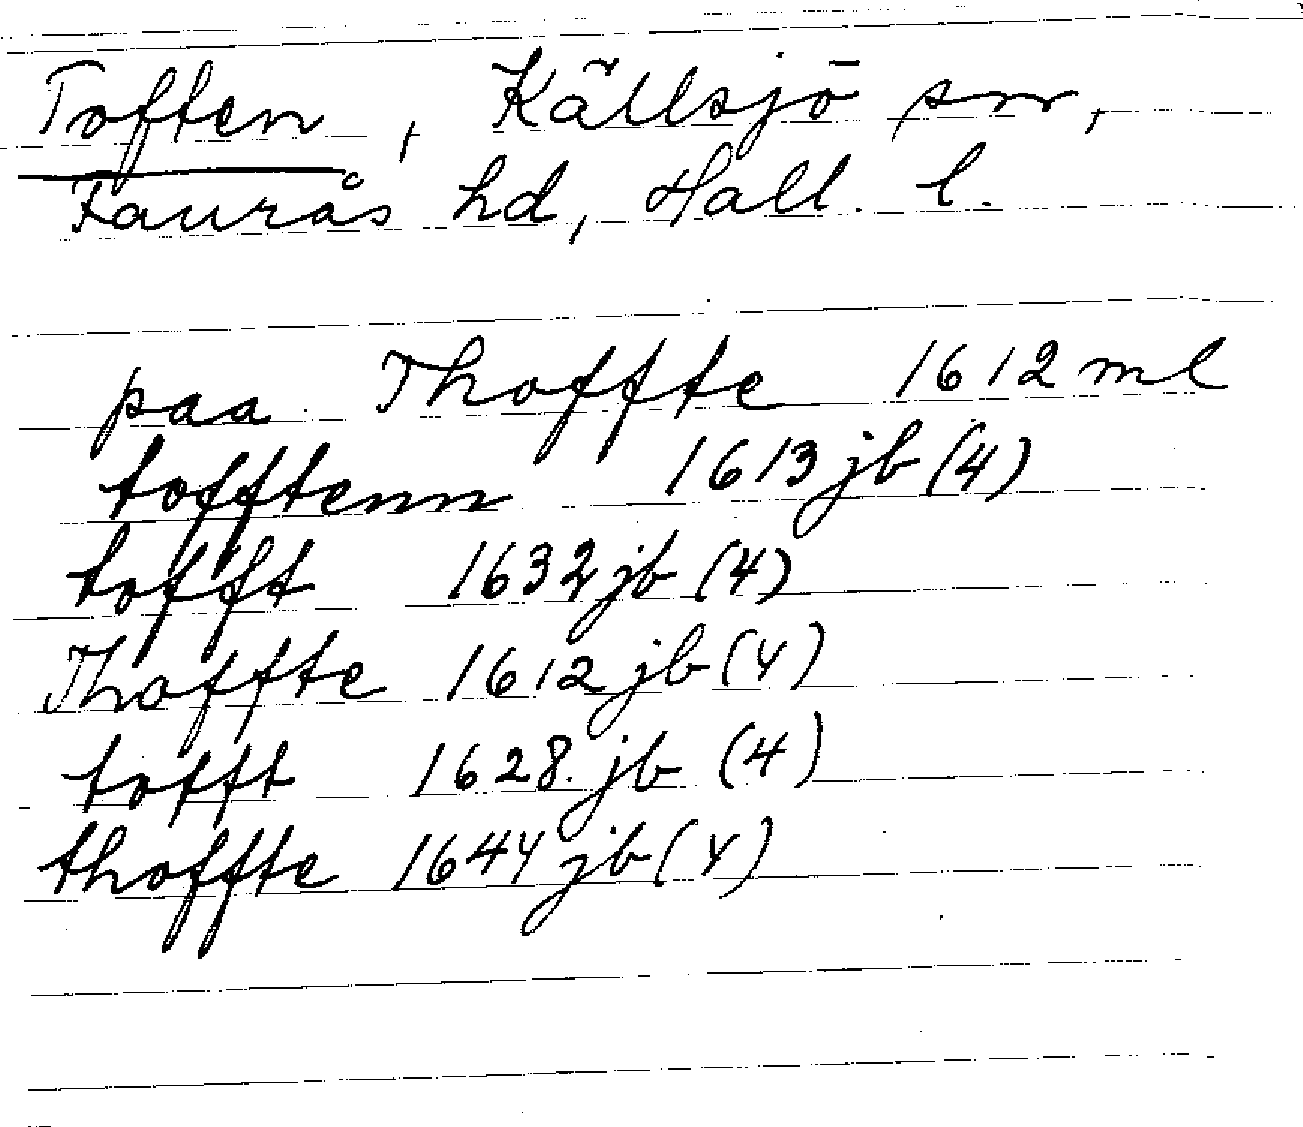 Toften, Källsjö sn,
Faurås hd, Hall. l.
paa Thoffte 1612 ml
tofftenn 1613 jb (4)
tofft 1632 jb (4)
Thoffte 1612 jb (4)
tofft 1628. jb (4)
thoffte 1644 jb (4)